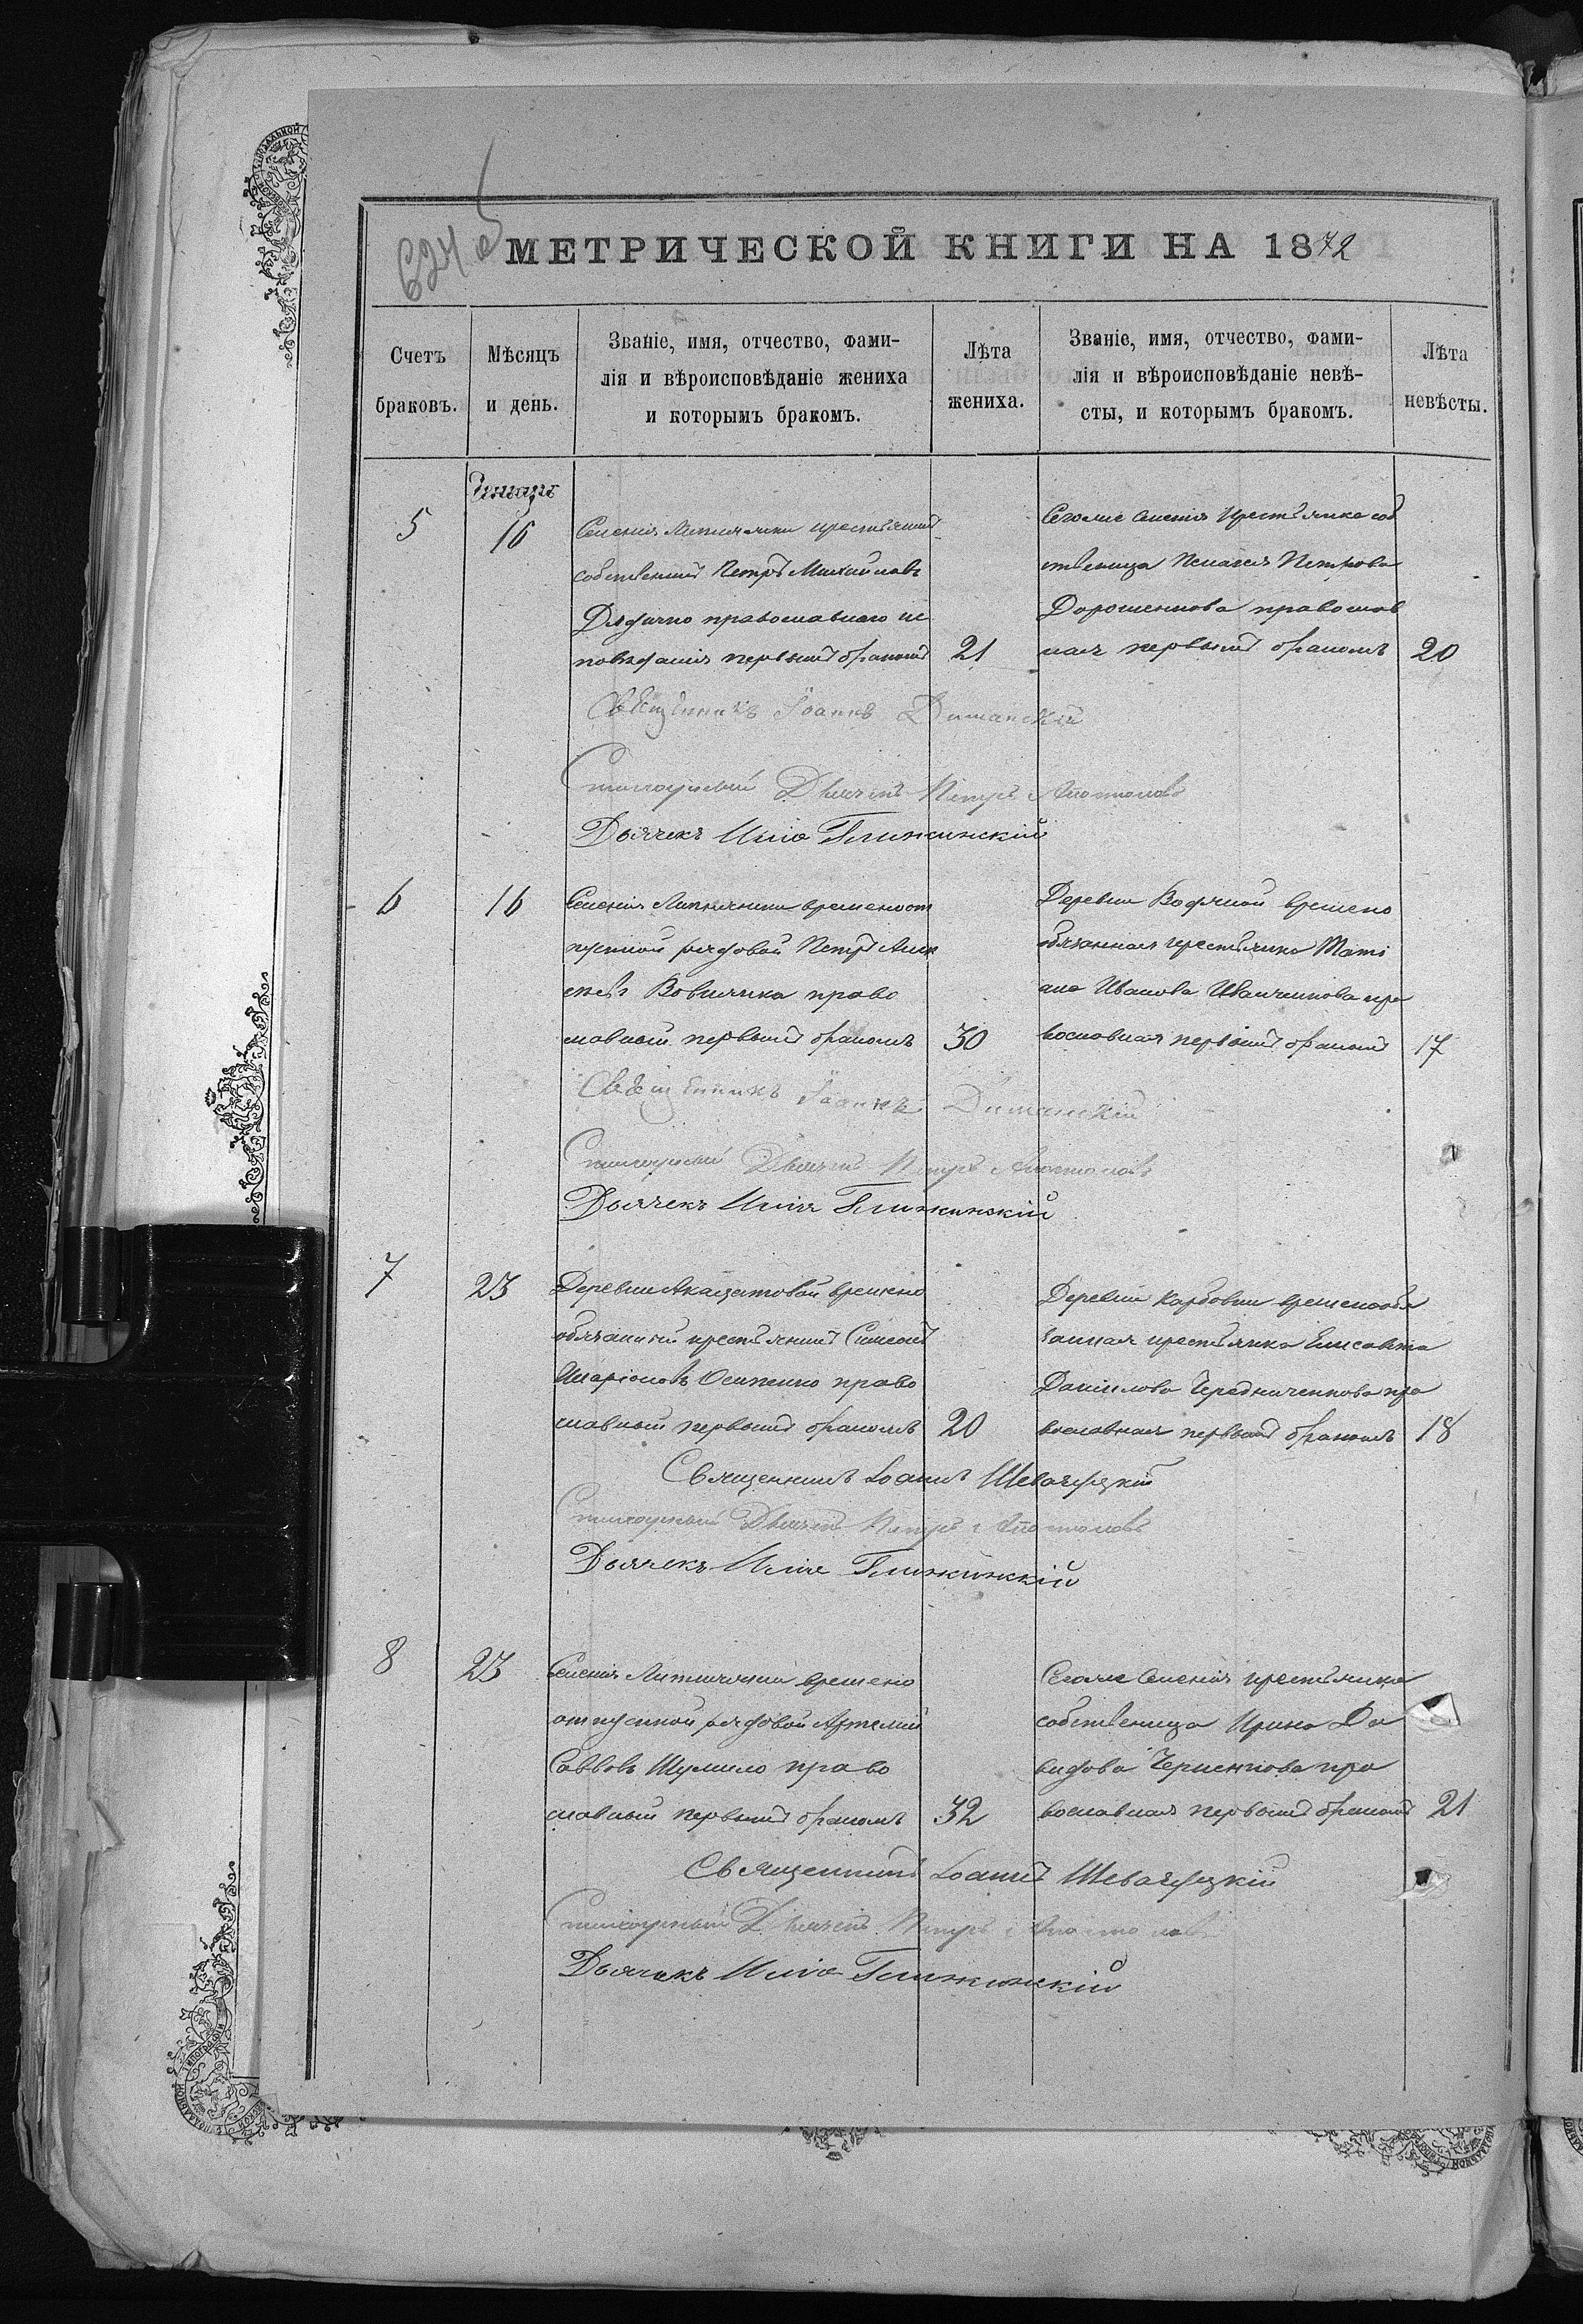 624 об
МЕТРИЧЕСКОЙ КНИГИ НА 1872
Счетъ
браковъ.
Мѣсяцъ
и день.
Званіе, имя, отчество, фами-
лія и вѣроисповѣданіе жениха
и которымъ бракомъ.
Лѣта
жениха.
Званіе, имя, отчество, фами-
лія и вѣроисповѣданіе невѣ-
сты, и которымъ бракомъ.
Лѣта
невѣсты.
5
16
Селенія Липнянки крестьянинъ
собственникъ Петръ Михайловъ
православнаго ис
повѣданія первымъ бракомъ
21
Сегоже Селенія Крестьянка соб
ственица Пелагея Петрова
Дорошенкова православ
ная первымъ бракомъ
20
Свещенникъ Іоаннъ
Дьячекъ Петръ Апостоловъ
Дьячекъ Илія
6
16
Селенія Липнянки временоот
пускной рядовой Петръ Алек
сѣевъ Вовнянка право
славный первымъ бракомъ
30
Деревни Водяной времено
обязанная крестьянка Тати
ана Иванова Иванченкова пра
вославная первымъ бракомъ
17
Свещенникъ Іоаннъ
Дьячекъ Петръ Апостоловъ
Дьячекъ Илія
7
23
Деревни Акацатовой времено
обязанный крестьянинъ Симеонъ
Иларіоновъ Осипенко право
славный первымъ бракомъ
20
Деревни Карбовки временообя
занная крестьянка Елисавета
Даніилова Чередниченкова пра
вославная первымъ бракомъ
18
Священникъ Іоаннъ
Дьячекъ Петръ Апостоловъ
Дьячекъ Илія
8
23
Селенія Липнянки времено
отпускной рядовой Артемій
Саввовъ Шумило право
славный первымъ бракомъ
32
Сегоже Селенія крестьянка
собственица Ирина Да
видова Черненкова пра
вославная первымъ бракомъ
21
Священникъ Іоаннъ
Дьячекъ Петръ Апостоловъ
Дьячекъ Илія